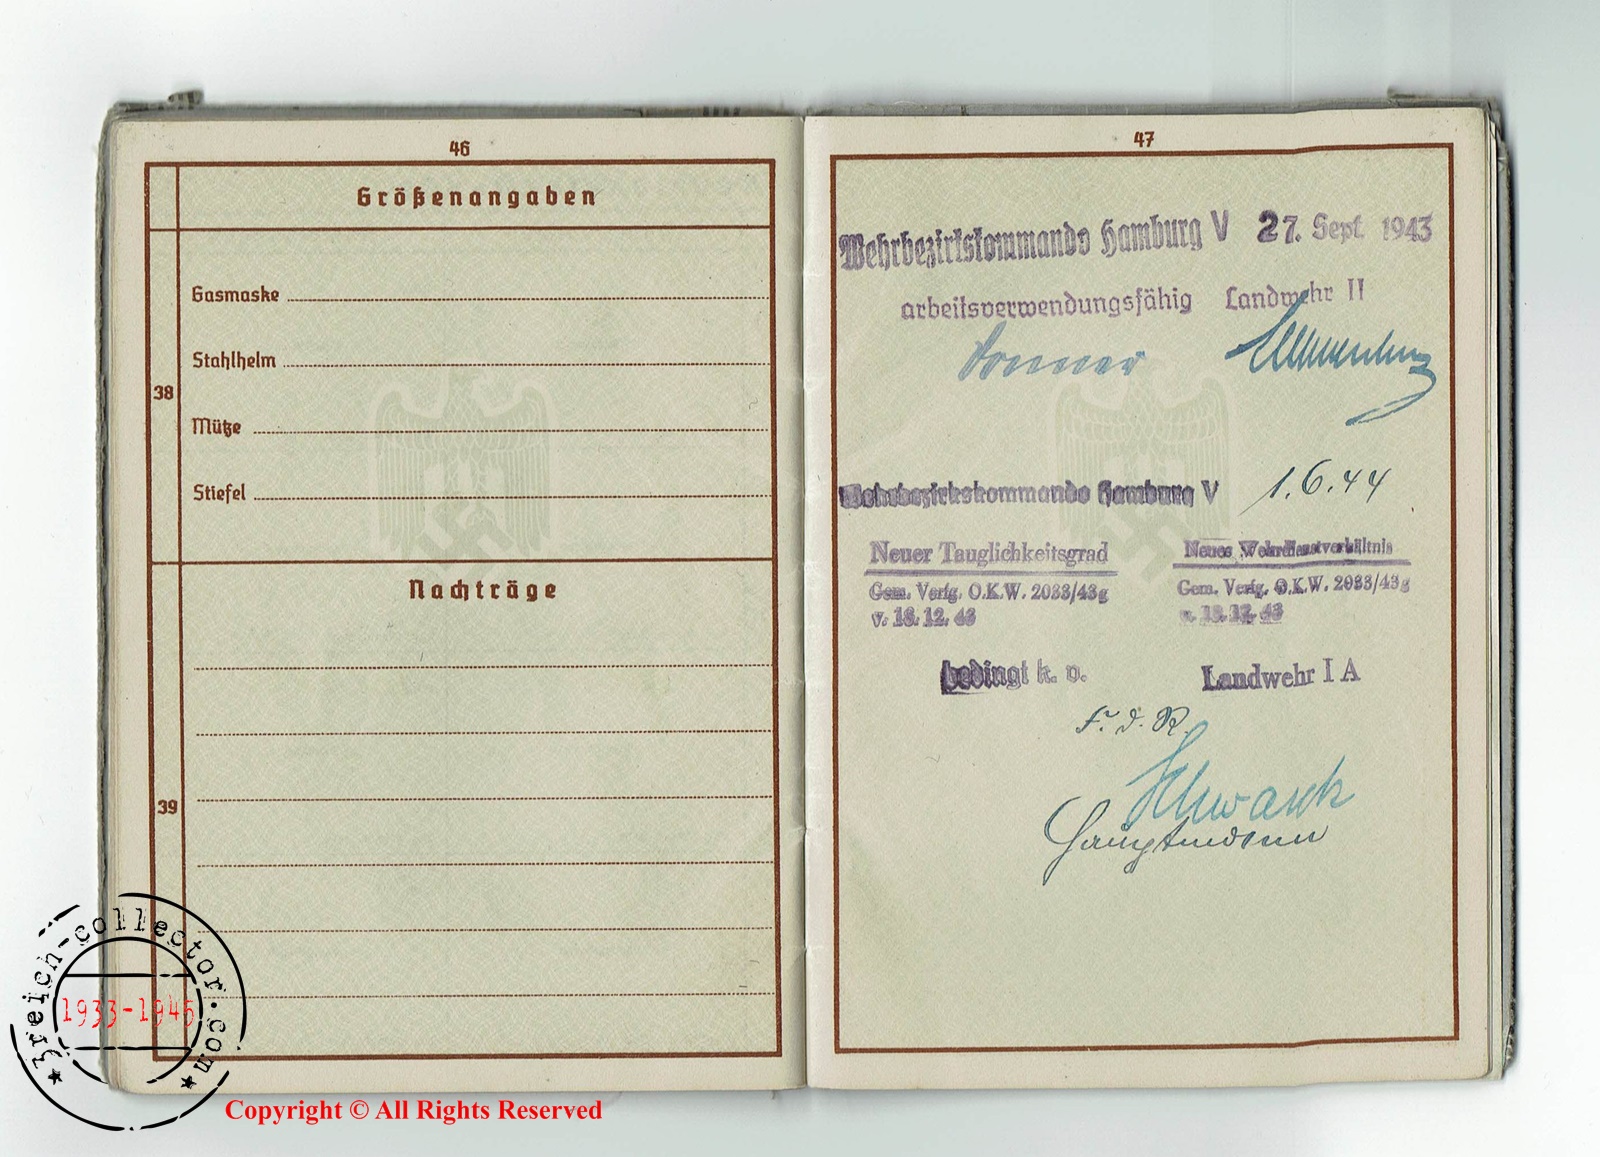 46
Größenangaben
38
Gasmaske
Stahlhelm
Mütze
Stiefel
Nachträge
39
47
Wehrbezirkskommando Hamburg V 27. Sept 1943
arbeitsverwendungsfähig Landwehr II
Wehrbezirkskommando Hamburg V 1.6.44
Neuer Tauglichkeitsgrad
Gem. Verfg. O.K.W. 2033/43g
v. 18.12.43
Neues Wehrdienstverhältnis
Gem. Verfg. O.K.W. 2033/43g
v. 18.12.43
bedingt k. v.
Landwehr I A
F. d. R.
Schwarck
Hauptmann
3reich-collector.com
1933-1945
Copyright © All Rights Reserved